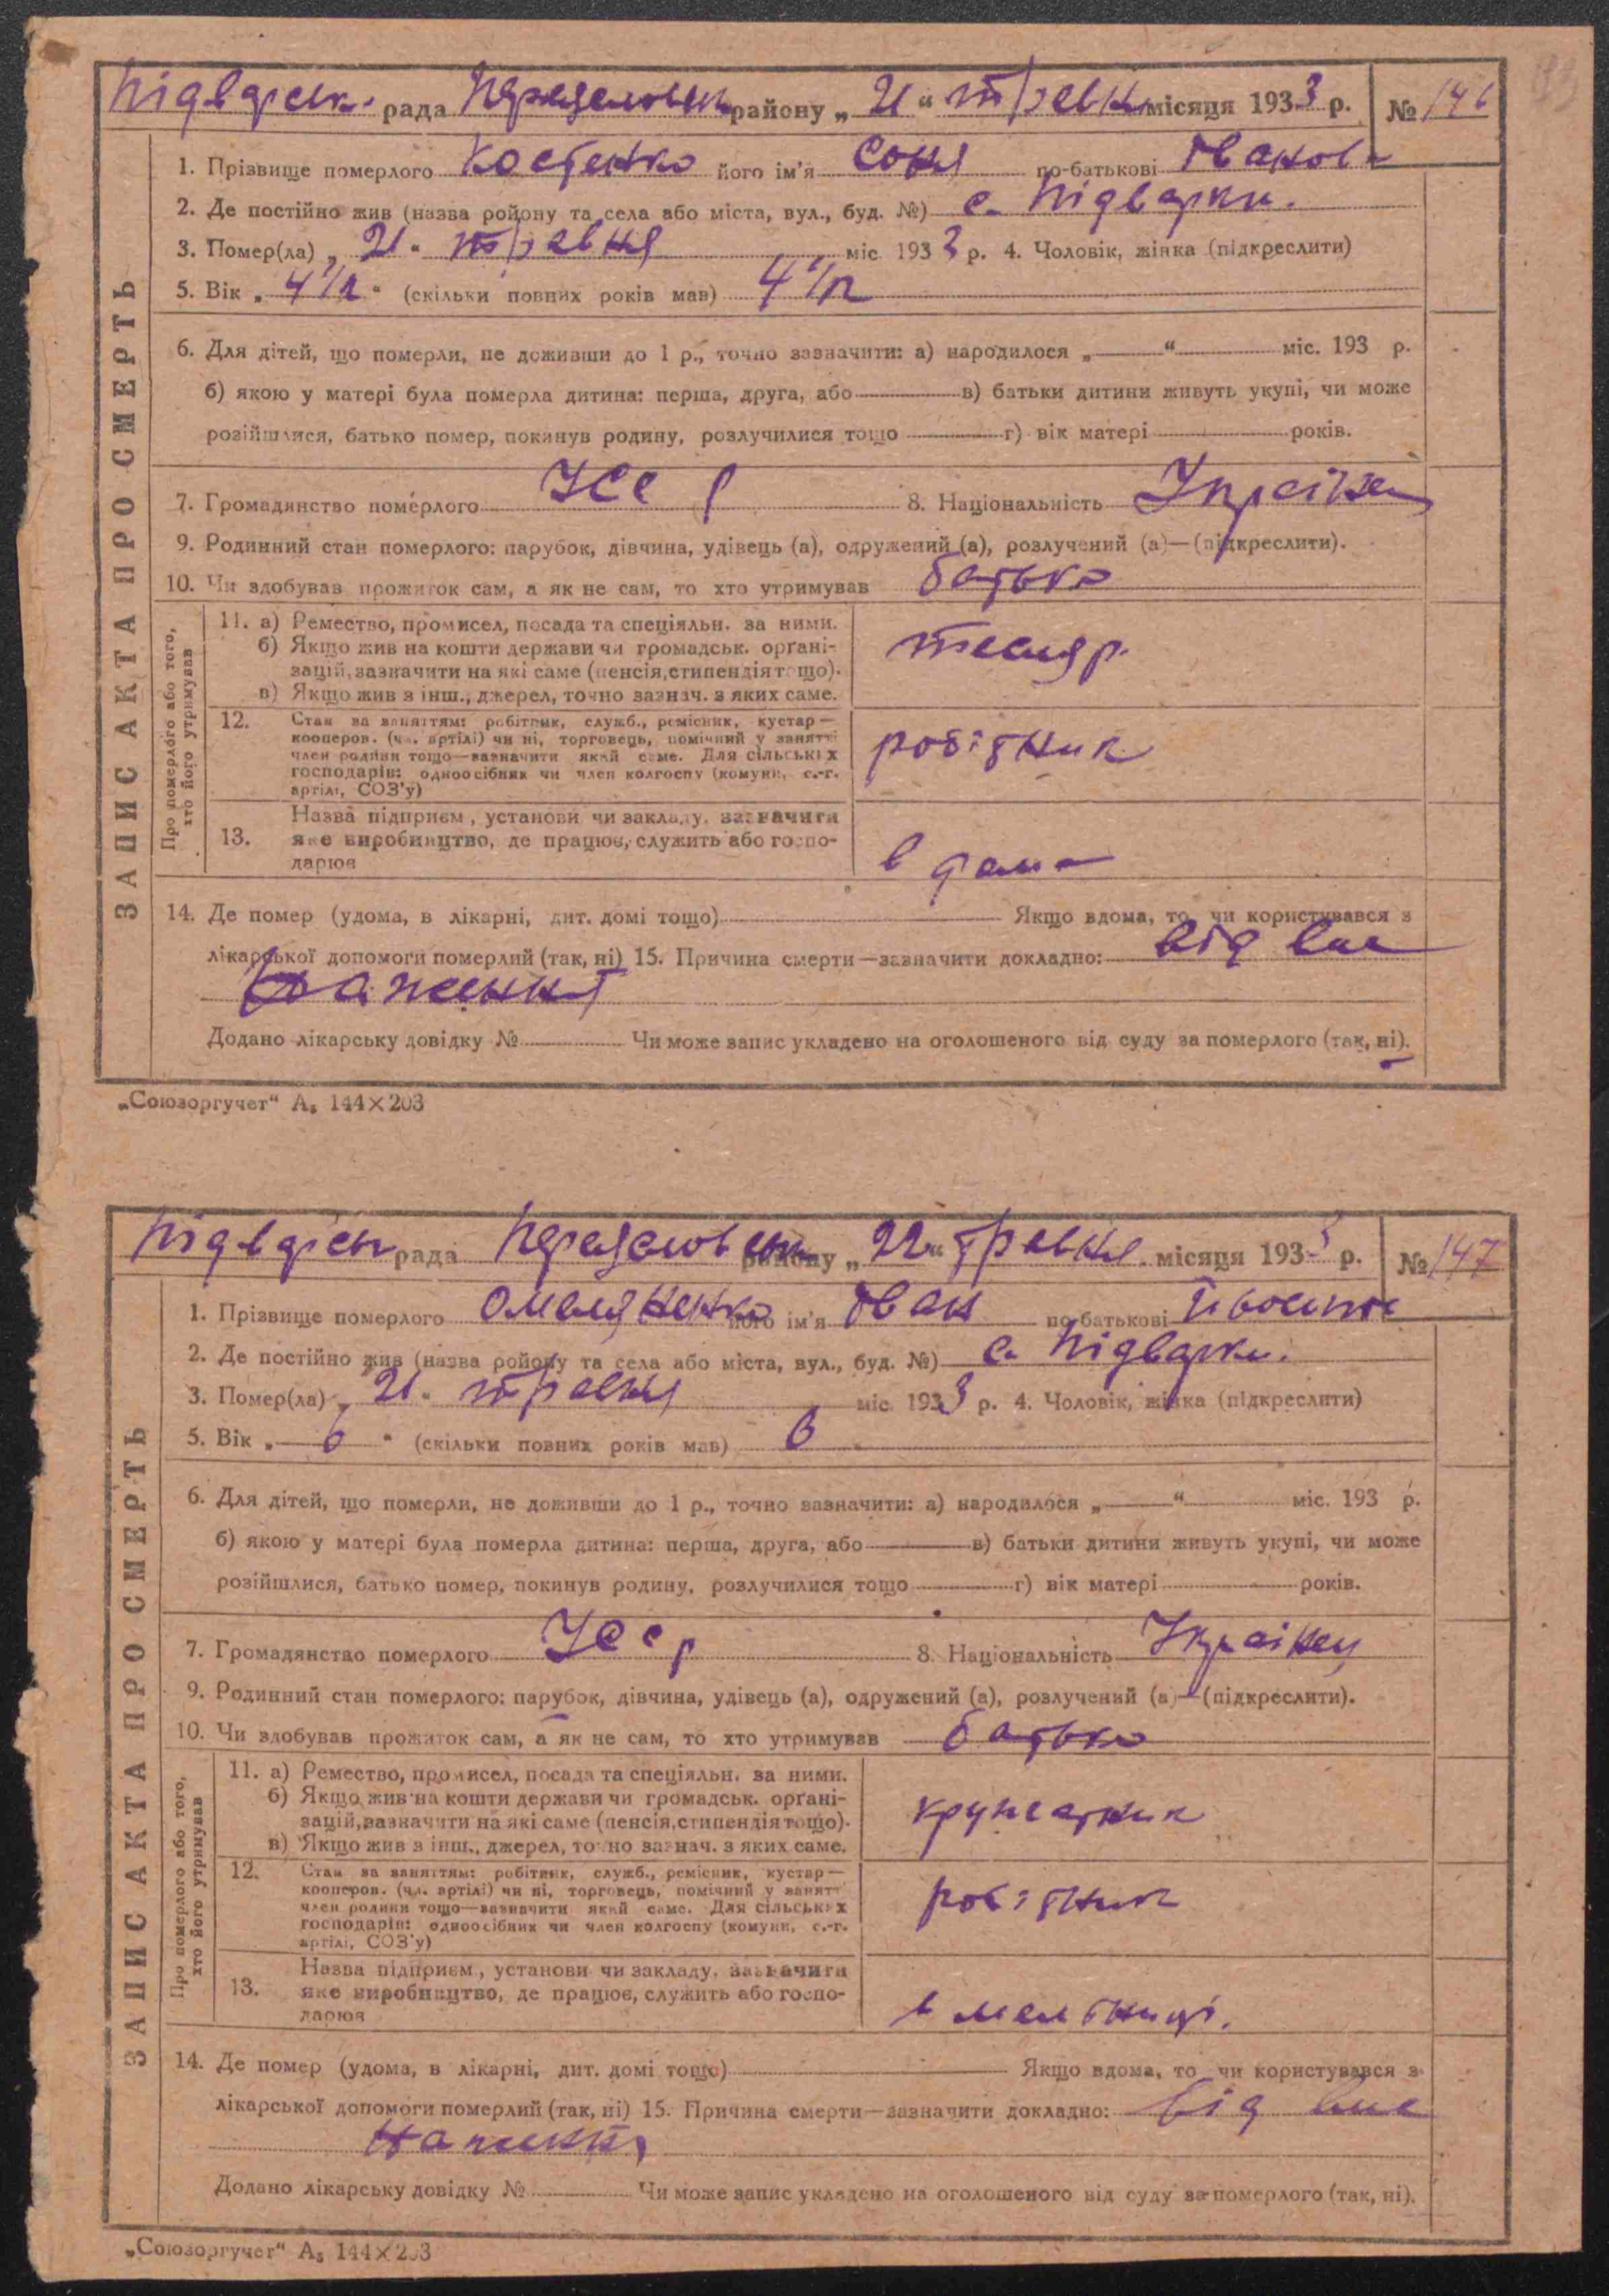 Підварськ. рада Переяславськ району „ 21 “ травня місяця 1933 р. № 146
ЗАПИС АКТА ПРО СМЕРТЬ
1. Прізвище померлого Костенко його ім'я Соня по-батькові Іванов
2. Де постійно жив (назва ройону та села або міста, вул., буд. №) с. Підварки.
3. Помер(ла) „ 21 “ травня міс 1933 р. 4. Чоловік, жінка (підкреслити)
5. Вік „ 4 1/2 “ (скільки повних років мав) 4 1/2
6. Для дітей, що померли, не доживши до 1 р., точно зазначити: а) народилося „ “ міс. 193 р.
б) якою у матері була померла дитина: перша, друга, або в) батьки дитини живуть укупі, чи може
розійшлися, батько помер, покинув родину, розлучилися тощо г) вік матері років.
7. Громадянство померлого УССР 8. Національність Українк
9. Родинний стан померлого: парубок, дівчина, удівець (а), одружений (а), розлучений (а)—(підкреслити).
10. Чи здобував прожиток сам, а як не сам, то хто утримував батько
Про померлого або того, хто його утримував
11. а) Ремество, промисел, посада та спеціяльн. за ними.
б) Якщо жив на кошти держави чи громадськ. орґані-
зацій, зазначити на які саме (пенсія, стипендія тощо).
в) Якщо жив з інш., джерел, точно зазнач. з яких саме.
тесляр.
12. Стан за заняттям: робітник, служб., ремісник, кустар—
кооперов. (чл. артілі) чи ні, торговець, помічний у занятті
член родини тощо—зазначити який саме. Для сільських
господарів: одноосібник чи член колгоспу (комуни, с.-г.
артілі, СОЗ'у)
робітник
13. Назва підприєм., установи чи закладу, зазначити
яке виробництво, де працює, служить або госпо-
дарює
в
14. Де помер (удома, в лікарні, дит. домі тощо) Якщо вдома, то чи користувався з
лікарської допомоги померлий (так, ні) 15. Причина смерти—зазначити докладно: від вис
наження
Додано лікарську довідку № Чи може запис укладено на оголошеного від суду за померлого (так, ні).
„Союзоргучет“ А₅ 144×203
Підварськ рада Переяславськ району „ 22 “ травня місяця 1933 р. № 147
ЗАПИС АКТА ПРО СМЕРТЬ
1. Прізвище померлого Омеляненко його ім'я Іван по-батькові
2. Де постійно жив (назва ройону та села або міста, вул., буд. №) с. Підварки.
3. Помер(ла) „ 21 “ травня міс 1933 р. 4. Чоловік, жінка (підкреслити)
5. Вік „ 6 “ (скільки повних років мав) 6
6. Для дітей, що померли, не доживши до 1 р., точно зазначити: а) народилося „ “ міс. 193 р.
б) якою у матері була померла дитина: перша, друга, або в) батьки дитини живуть укупі, чи може
розійшлися, батько помер, покинув родину, розлучилися тощо г) вік матері років.
7. Громадянство померлого УССР 8. Національність Українец
9. Родинний стан померлого: парубок, дівчина, удівець (а), одружений (а), розлучений (а)—(підкреслити).
10. Чи здобував прожиток сам, а як не сам, то хто утримував батько
Про померлого або того, хто його утримував
11. а) Ремество, промисел, посада та спеціяльн. за ними.
б) Якщо жив на кошти держави чи громадськ. орґані-
зацій, зазначити на які саме (пенсія, стипендія тощо).
в) Якщо жив з інш., джерел, точно зазнач. з яких саме.
12. Стан за заняттям: робітник, служб., ремісник, кустар—
кооперов. (чл. артілі) чи ні, торговець, помічний у занятті
член родини тощо—зазначити який саме. Для сільських
господарів: одноосібник чи член колгоспу (комуни, с.-г.
артілі, СОЗ'у)
робітник
13. Назва підприєм., установи чи закладу, зазначити
яке виробництво, де працює, служить або госпо-
дарює
в мельниці.
14. Де помер (удома, в лікарні, дит. домі тощо) Якщо вдома, то чи користувався з
лікарської допомоги померлий (так, ні) 15. Причина смерти—зазначити докладно: від вис
наження
Додано лікарську довідку № Чи може запис укладено на оголошеного від суду за померлого (так, ні).
„Союзоргучет“ А₅ 144×203